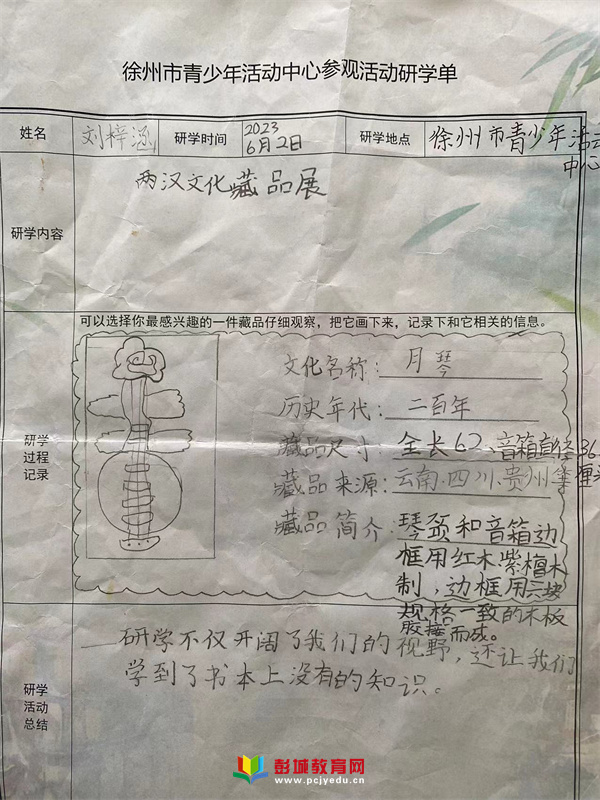 徐州市青少年活动中心参观活动研学单
姓名 刘梓涵 研学时间 2023 6月2日 研学地点 徐州市青少年活动中心
研学内容
两汉文化藏品展
可以选择你最感兴趣的一件藏品仔细观察，把它画下来，记录下和它相关的信息。
研学
过程
记录
文化名称：月琴
历史年代：二百年
藏品尺寸：全长62、音箱直径36厘米
藏品来源：云南.四川、贵州等
藏品简介：琴颈和音箱边
框用红木紫檀木
制，边框用六块
规格一致的木板
胶接而成。
研学
活动
总结
研学不仅开阔了我们的视野，还让我们
学到了书本上没有的知识。
彭城教育网
www.pcjyedu.cn